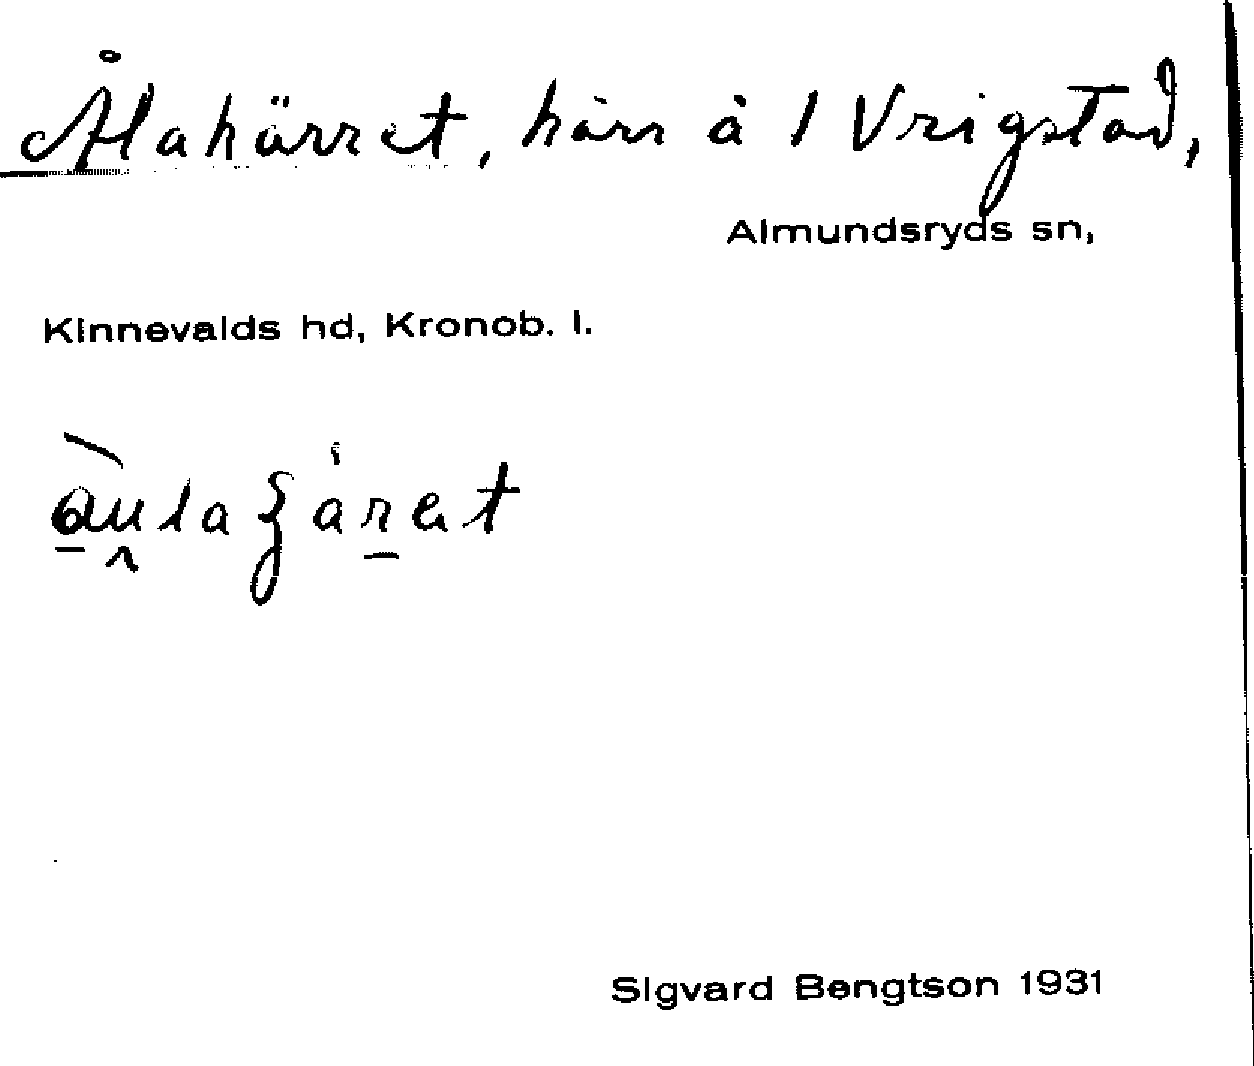 Ålakärret, kärr å 1 Vrigstad,
Almundsryds sn,
Kinnevalds hd, Kronob. l.
Sigvard Bengtson 1931